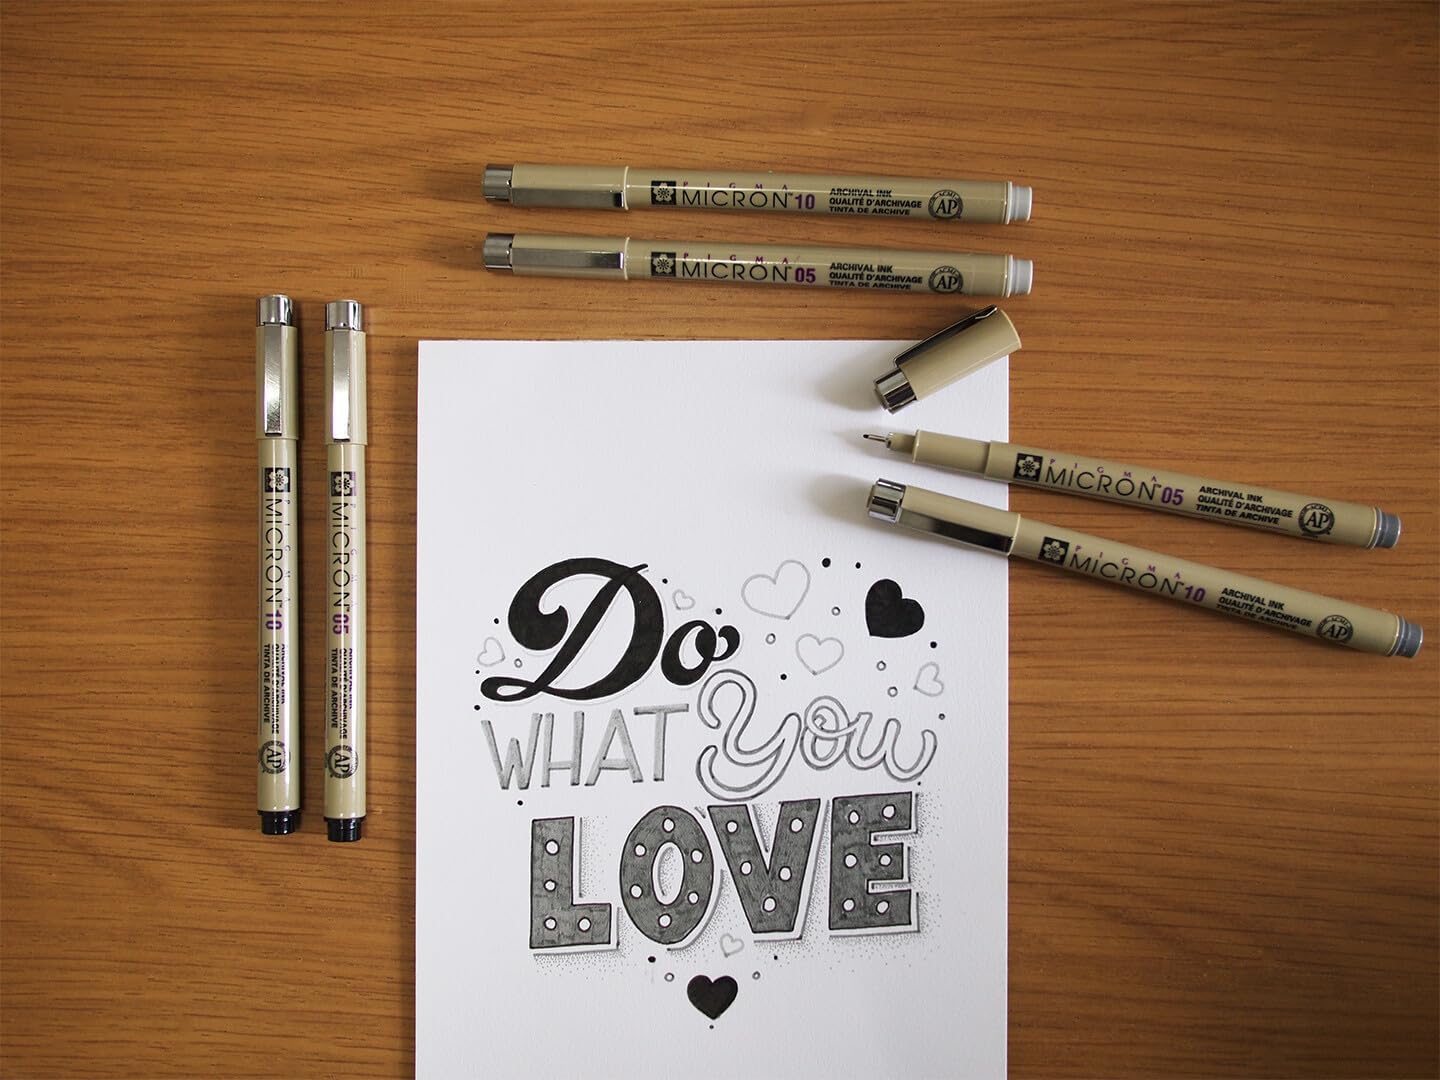 PIGMA
MICRON™ 10
ARCHIVAL INK
QUALITÉ D'ARCHIVAGE
TINTA DE ARCHIVE
ACMI
AP
PIGMA
MICRON™ 05
ARCHIVAL INK
QUALITÉ D'ARCHIVAGE
TINTA DE ARCHIVE
ACMI
AP
PIGMA
MICRON™ 05
ARCHIVAL INK
QUALITÉ D'ARCHIVAGE
TINTA DE ARCHIVE
ACMI
AP
PIGMA
MICRON™ 10
ARCHIVAL INK
QUALITÉ D'ARCHIVAGE
TINTA DE ARCHIVE
ACMI
AP
PIGMA
MICRON™ 10
ARCHIVAL INK
QUALITÉ D'ARCHIVAGE
TINTA DE ARCHIVE
AP
PIGMA
MICRON™ 05
ARCHIVAL INK
QUALITÉ D'ARCHIVAGE
TINTA DE ARCHIVE
AP
Do
WHAT You
LOVE